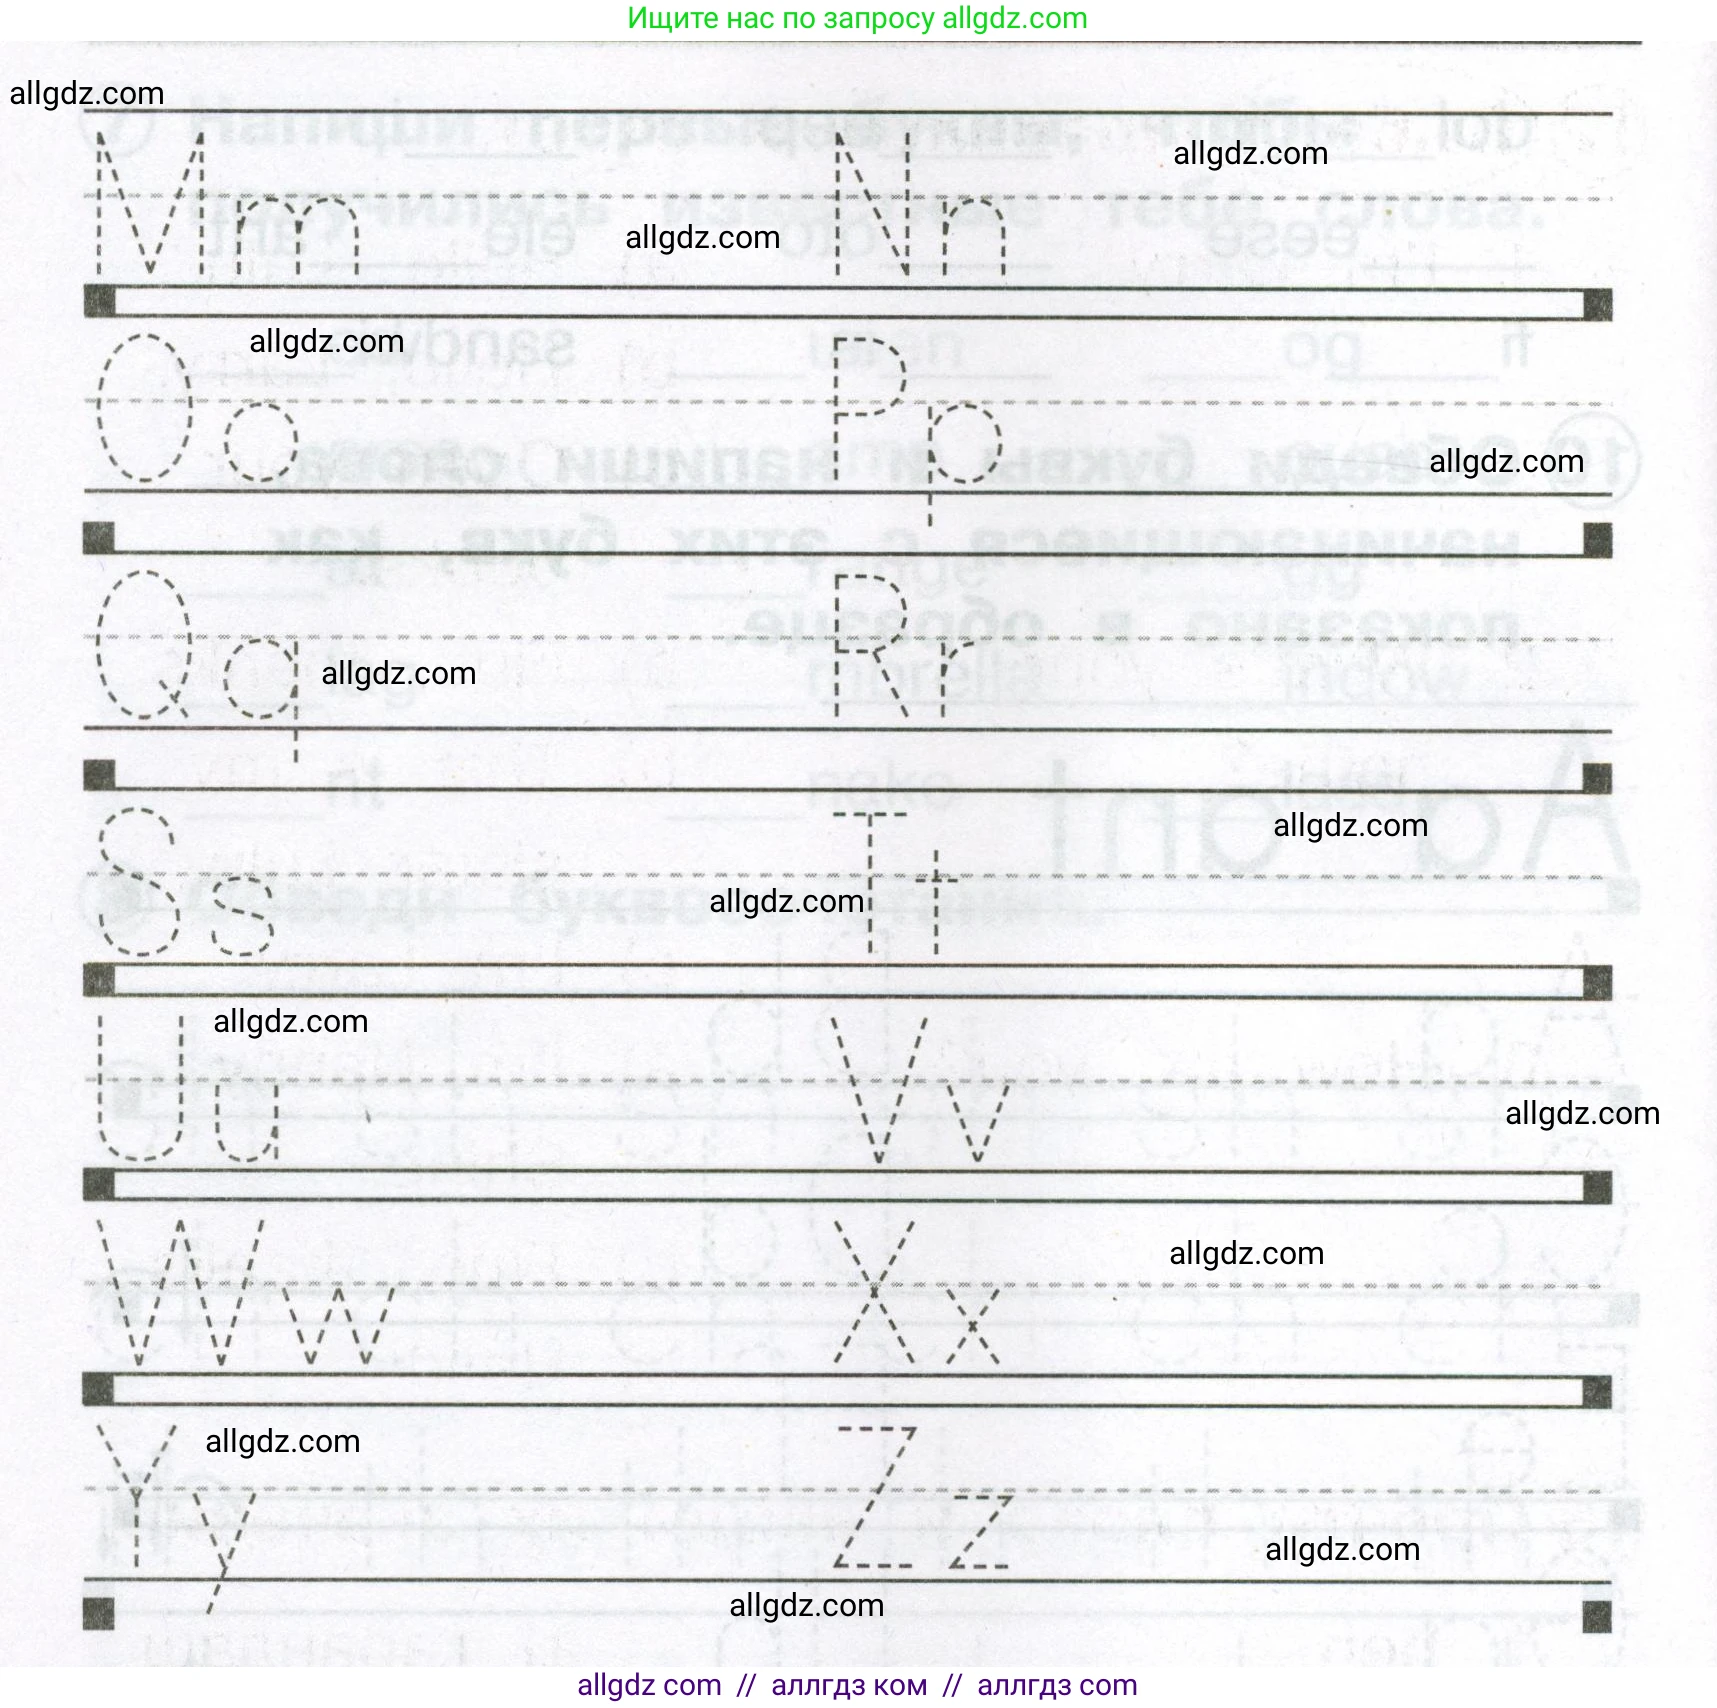 Ищите нас по запросу allgdz.com
allgdz.com
M m N n allgdz.com
allgdz.com
allgdz.com
O o P p allgdz.com
Q q allgdz.com R r
allgdz.com
S s allgdz.com T t
allgdz.com
U u V v allgdz.com
W w X x allgdz.com
allgdz.com
Y y Z z allgdz.com
allgdz.com
allgdz com // аллгдз ком // аллгдз com